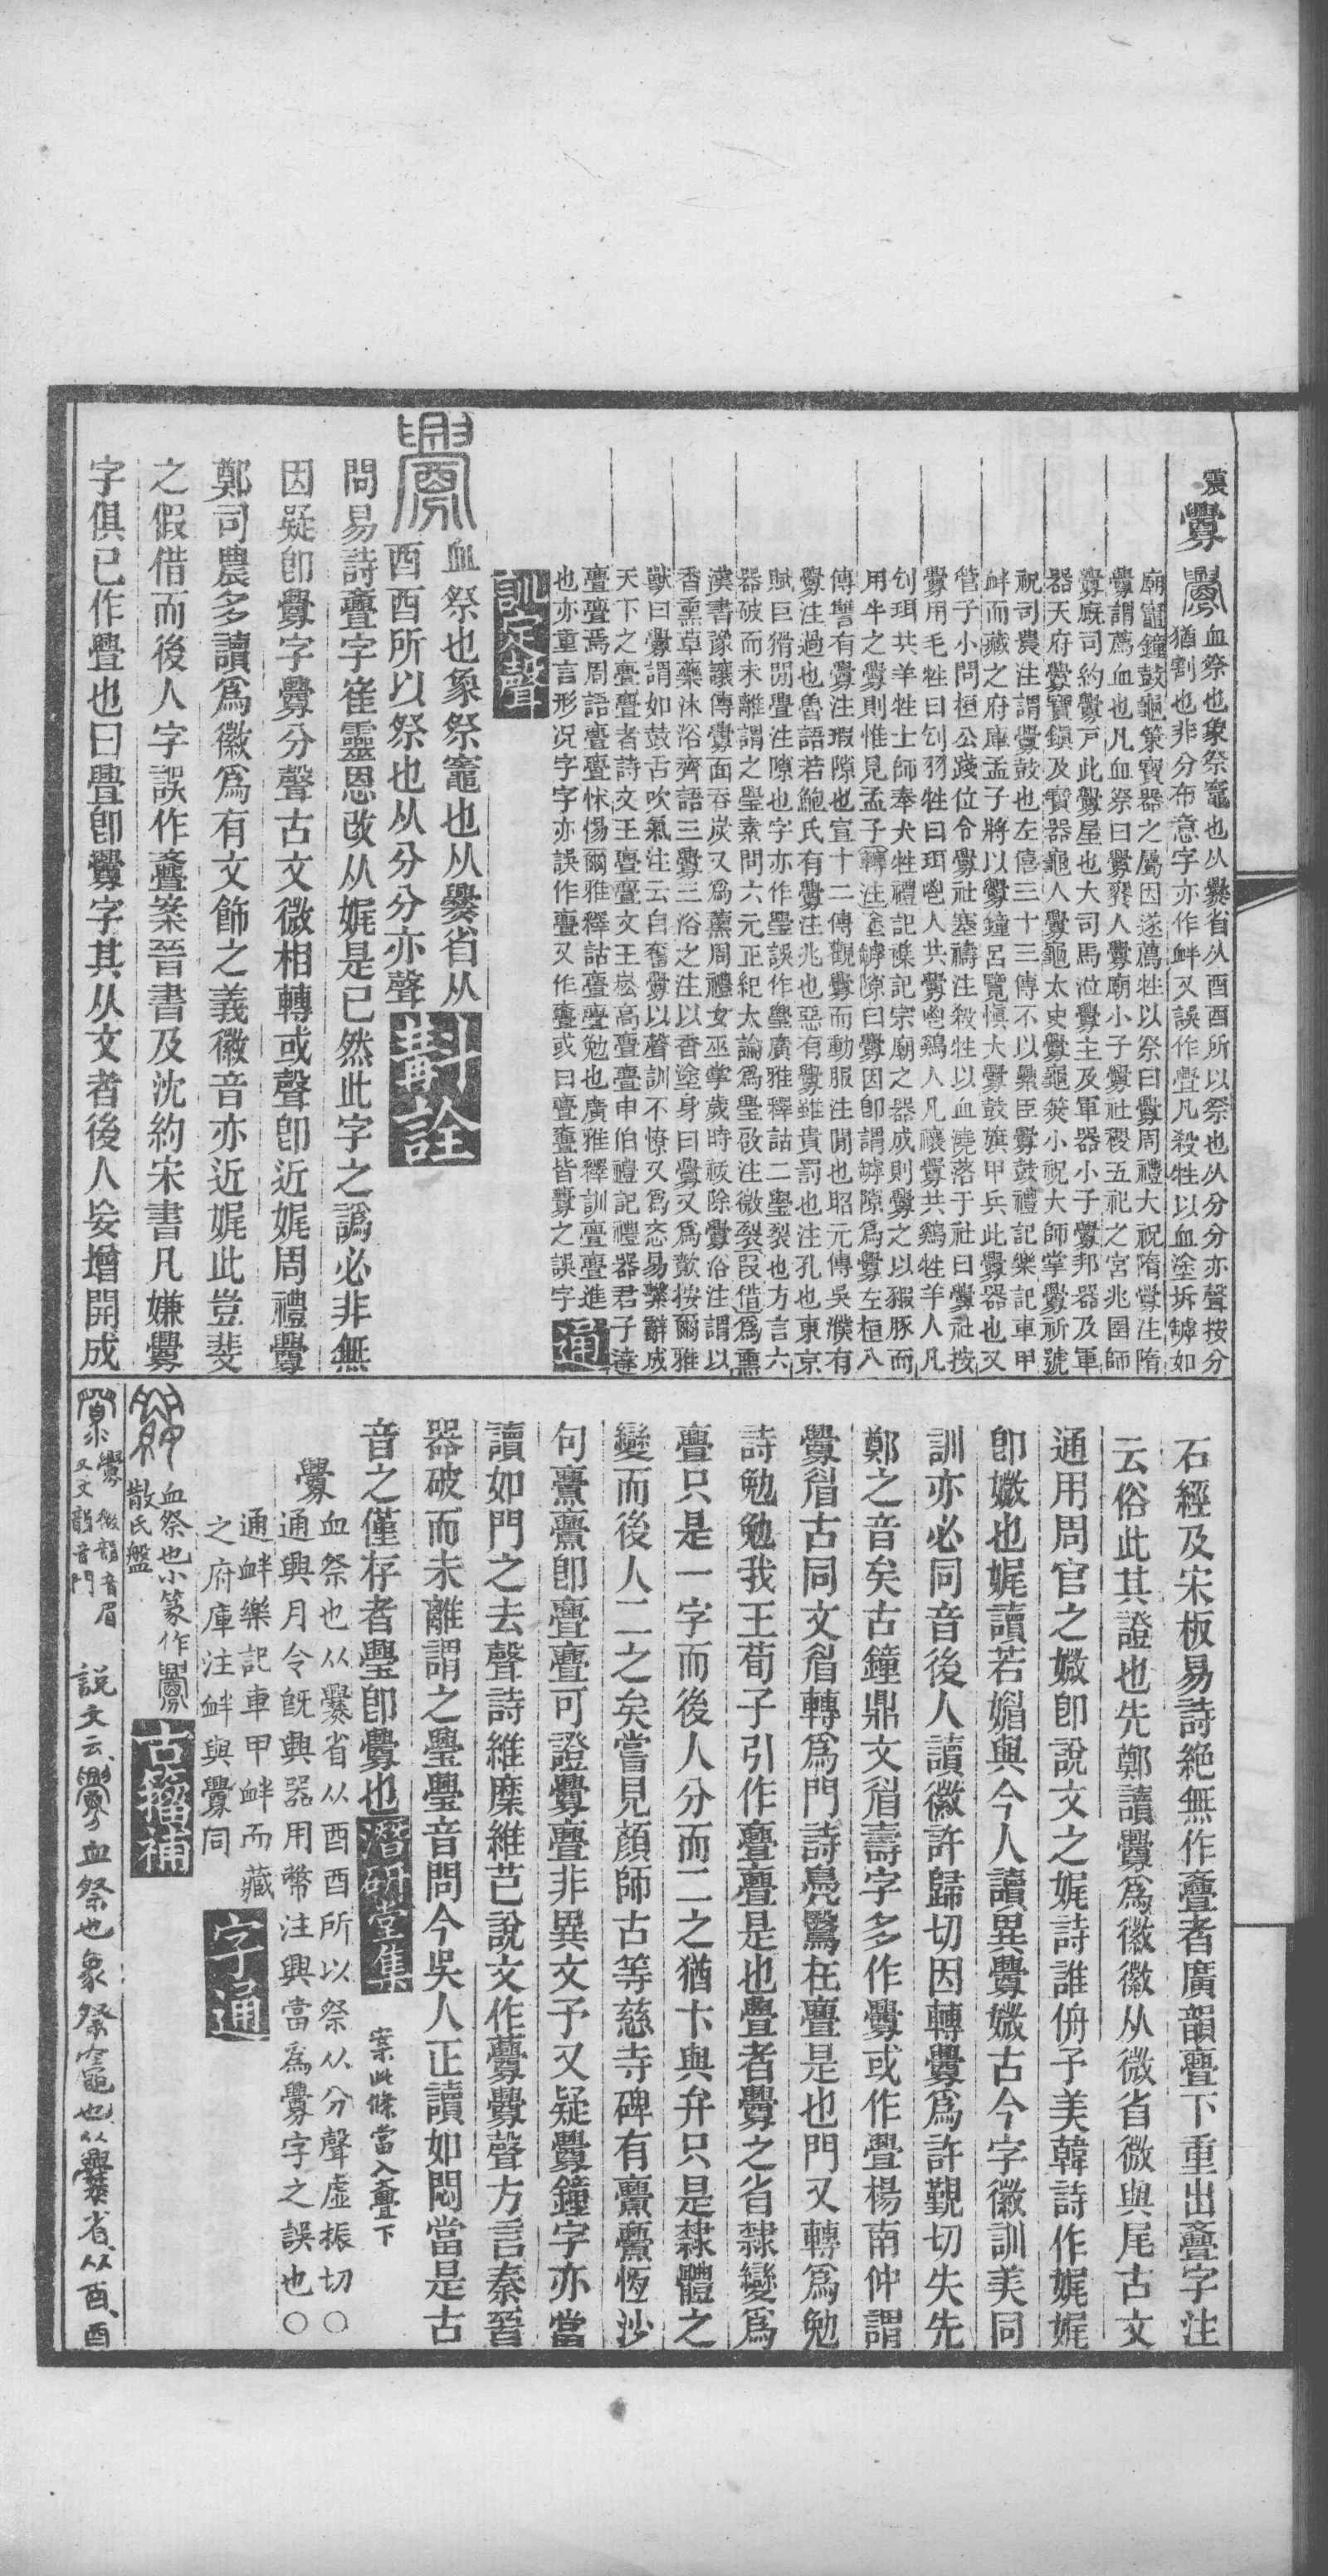 震釁
釁血祭也象祭竈也从爨省从酉酉所以祭也从分分亦聲按分
猶割也非分布意字亦作衅又誤作亹凡殺牲以血塗坼罅如
廟竈鐘鼓龜策寶器之屬因遂薦牲以祭曰釁周禮大祝隋釁注隋
釁謂薦血也凡血祭曰釁雞人釁廟小子釁社稷五祀之宮兆圉師
釁廐司約釁戸此釁屋也大司馬涖釁主及軍器小子釁邦器及軍
器天府釁寶鎮及寶器龜人釁龜太史釁龜筴小祝大師掌釁祈號
祝司農注謂釁鼓也左僖三十三傳不以纍臣釁鼓禮記樂記車甲
衅而藏之府庫孟子將以釁鐘呂覽慎大釁鼓旗甲兵此釁器也又
管子小問桓公踐位令釁社塞禱注殺牲以血澆落于社曰釁社按
釁用毛牲曰刉羽牲曰珥鬯人共釁鬯雞人凡禳釁共雞牲羊人凡
刉珥共羊牲士師奉犬牲禮記襍記宗廟之器成則釁之以豭豚而
用牛之釁則惟見孟子轉注塗罅隙曰釁因卽謂罅隙爲釁左桓八
傳讐有釁注瑕隙也宣十二傳觀釁而動服注閒也昭元傳吳濮有
釁注過也魯語若鮑氏有釁注兆也惡有釁雖貴罰也注孔也東京
賦巨猾閒亹注隙也字亦作璺誤作舋廣雅釋詁二璺裂也方言六
器破而未離謂之璺素問六元正紀大論爲璺啟注微裂叚借爲熏
漢書豫讓傳釁面吞炭又爲薰周禮女巫掌歲時祓除釁浴注謂以
香熏草藥沐浴齊語三釁三浴之注以香塗身曰釁又爲歕按爾雅
獸曰釁謂如鼓舌吹氣注云自奮釁以聲訓不憭又爲忞易繫辭成
天下之亹亹者詩文王亹亹文王崧高亹亹申伯禮記禮器君子達
亹亹焉周語亹亹怵惕爾雅釋詁亹亹勉也廣雅釋訓亹亹進
也亦重言形况字字亦誤作亹又作亹或曰亹亹皆釁之誤字通
訓定聲
釁血祭也象祭竈也从爨省从
酉酉所以祭也从分分亦聲斠詮
問易詩亹字崔靈恩改从娓是已然此字之譌必非無
因疑卽釁字釁分聲古文微相轉或聲卽近娓周禮釁
鄭司農多讀爲徽爲有文飾之義徽音亦近娓此豈斐
之假借而後人字誤作亹案晉書及沈約宋書凡嫌釁
字俱已作亹也曰亹卽釁字其从文者後人妄增開成
石經及宋板易詩絶無作斖者廣韻亹下重出斖字注
云俗此其證也先鄭讀釁爲徽徽从微省微與尾古文
通用周官之媺卽說文之娓詩誰侜予美韓詩作娓娓
卽媺也娓讀若媚與今人讀異釁媺古今字徽訓美同
訓亦必同音後人讀徽許歸切因轉釁爲許覲切失先
鄭之音矣古鐘鼎文眉壽字多作釁或作亹楊南仲謂
釁眉古同文眉轉爲門詩鳧鷖在亹是也門又轉爲勉
詩勉勉我王荀子引作亹亹是也亹者釁之省隸變爲
亹只是一字而後人分而二之猶卞與弁只是隸體之
變而後人二之矣嘗見顔師古等慈寺碑有亹亹恆沙
句亹亹卽亹亹可證釁亹非異文予又疑釁鐘字亦當
讀如門之去聲詩維糜維芑說文作虋釁聲方言秦晉
器破而未離謂之璺璺音問今吳人正讀如悶當是古
音之僅存者璺卽釁也潛研堂集 案此條當入亹下
釁血祭也从爨省从酉酉所以祭从分聲虛振切〇
通興月令旣興器用幣注興當爲釁字之誤也〇
通衅樂記車甲衅而藏
之府庫注衅與釁同 字通
血祭也小篆作釁
散氏盤 古籀補
釁 微韻音眉
又文韻音門 說文云釁血祭也象祭竈也从爨省从酉酉